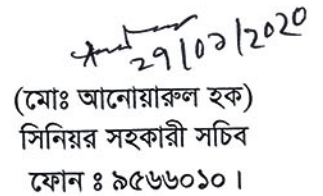 29/03/2020
(মোঃ আনোয়ারুল হক)
সিনিয়র সহকারী সচিব
ফোন ঃ ৯৫৬৬০১০।